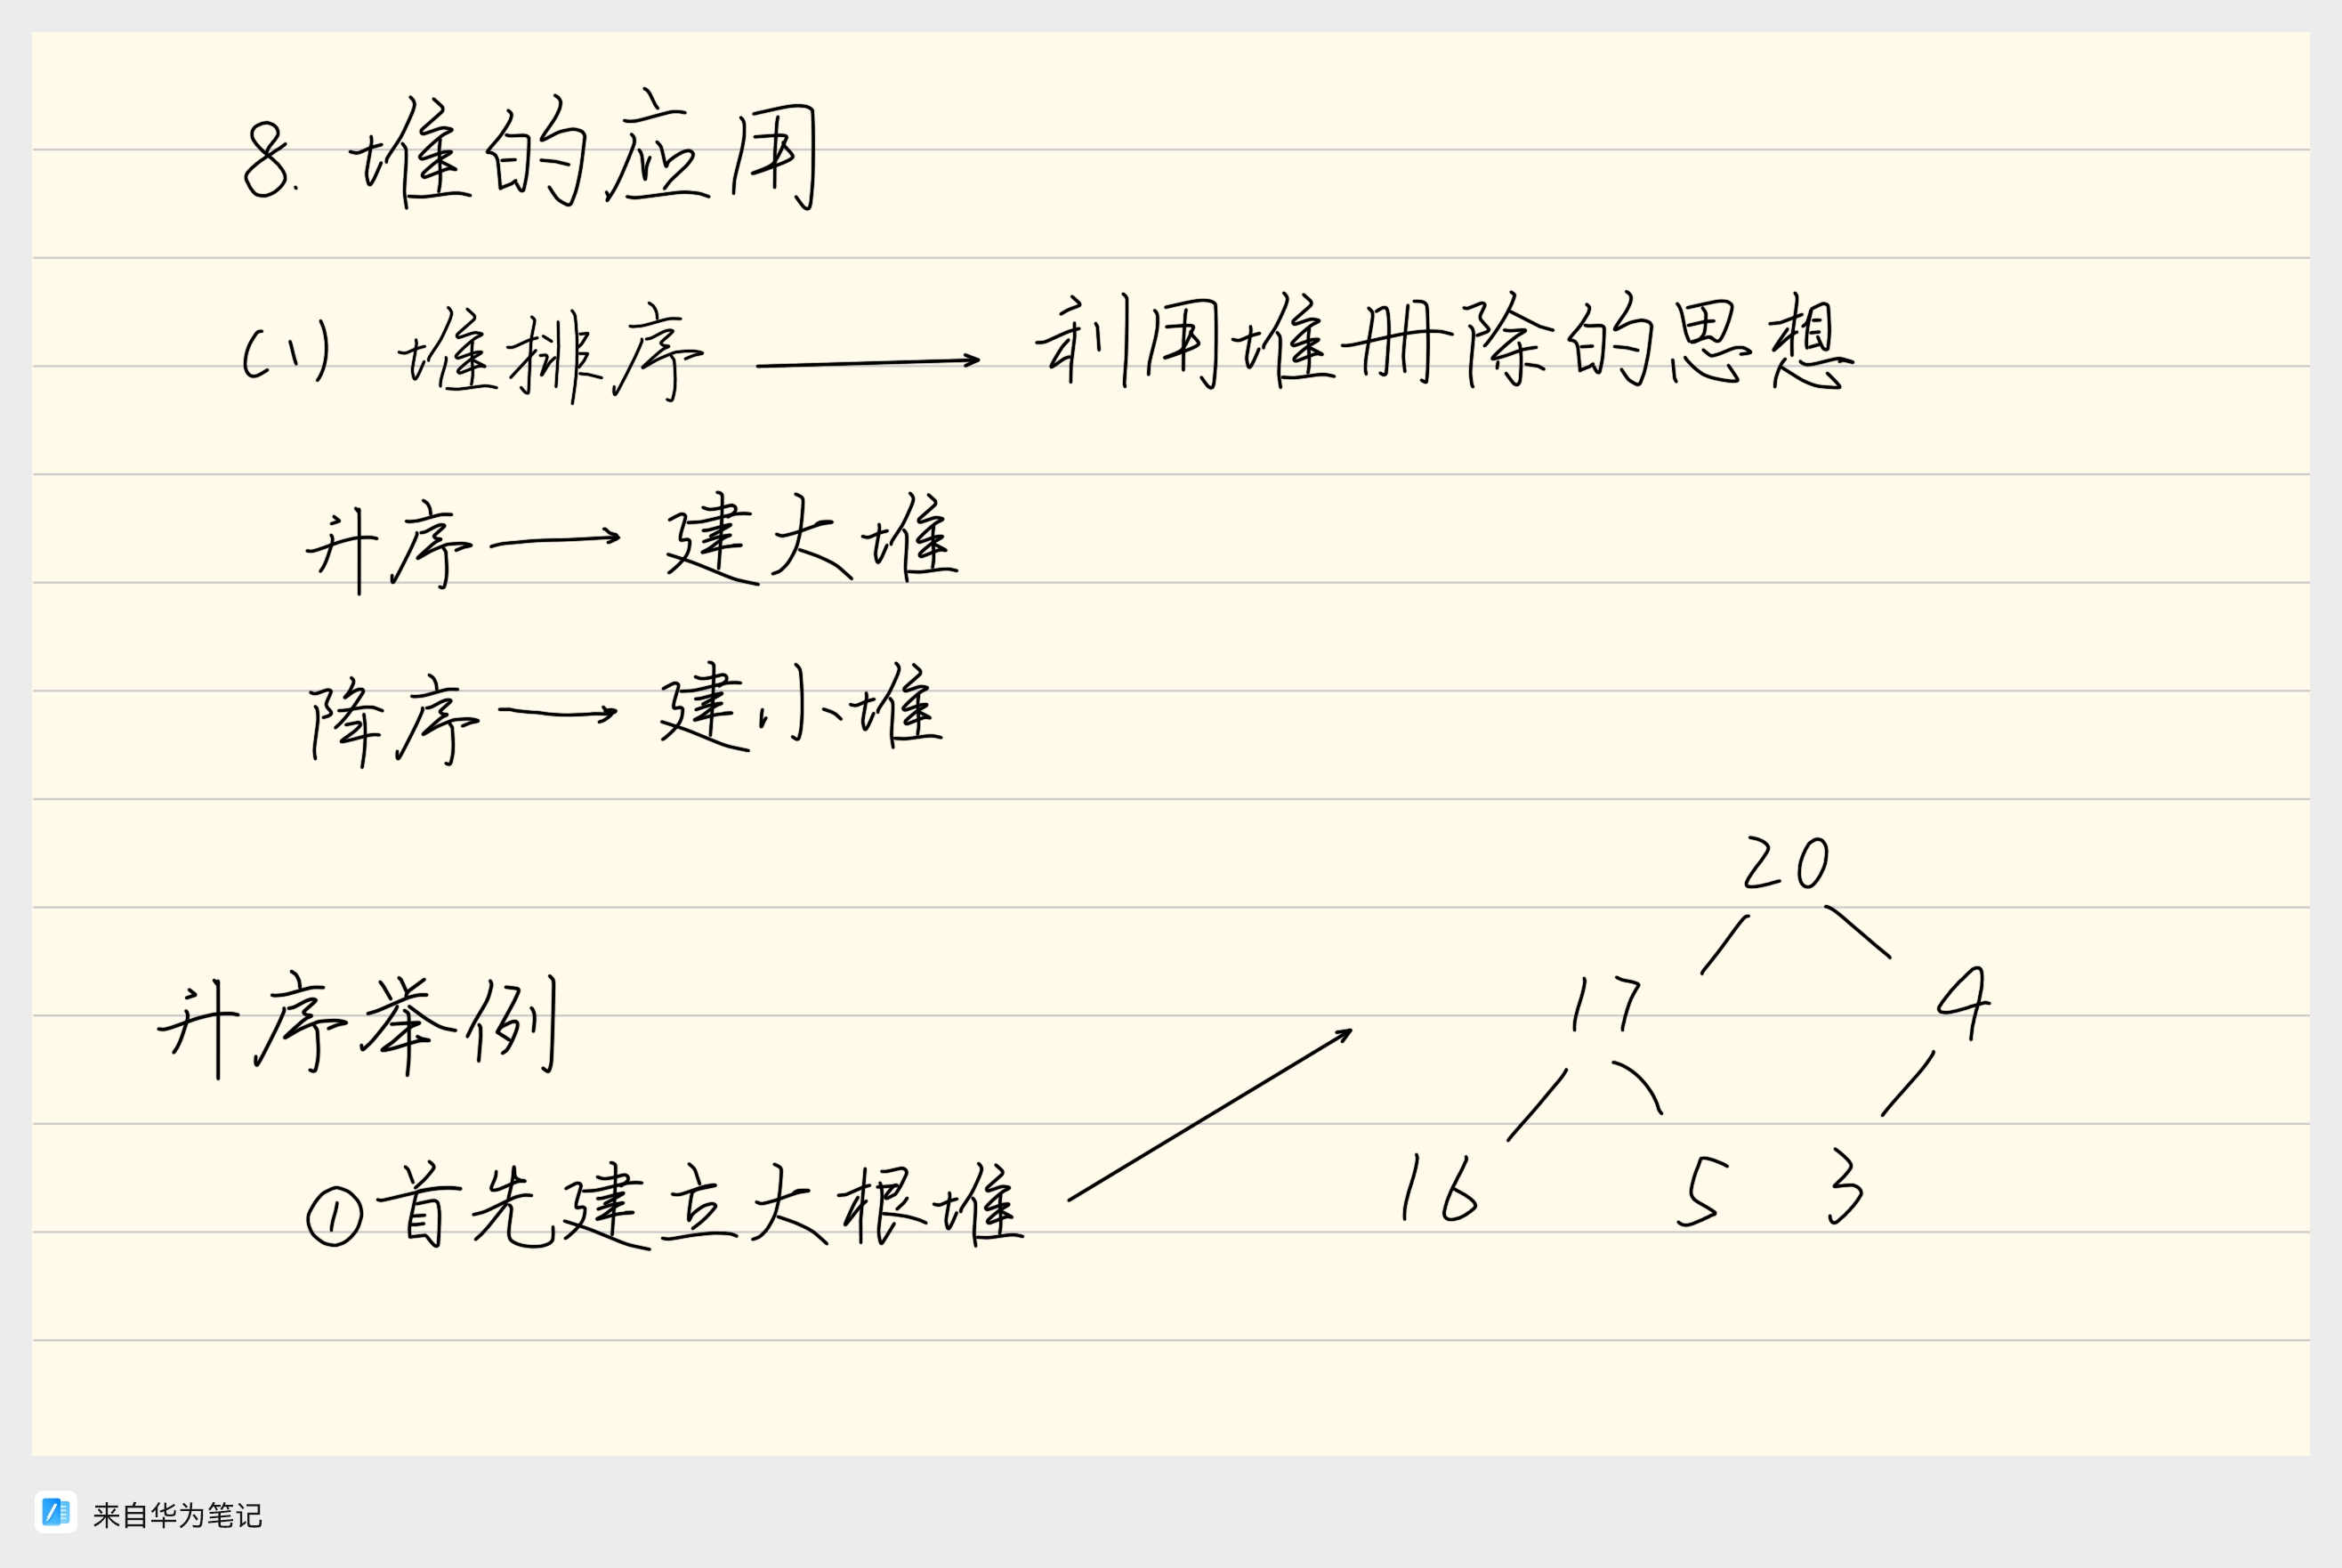 8. 堆的应用
(1) 堆排序 → 利用堆删除的思想
升序 → 建大堆
降序 → 建小堆
20
升序举例
17 4
①首先建立大根堆 →
16 5 3
来自华为笔记